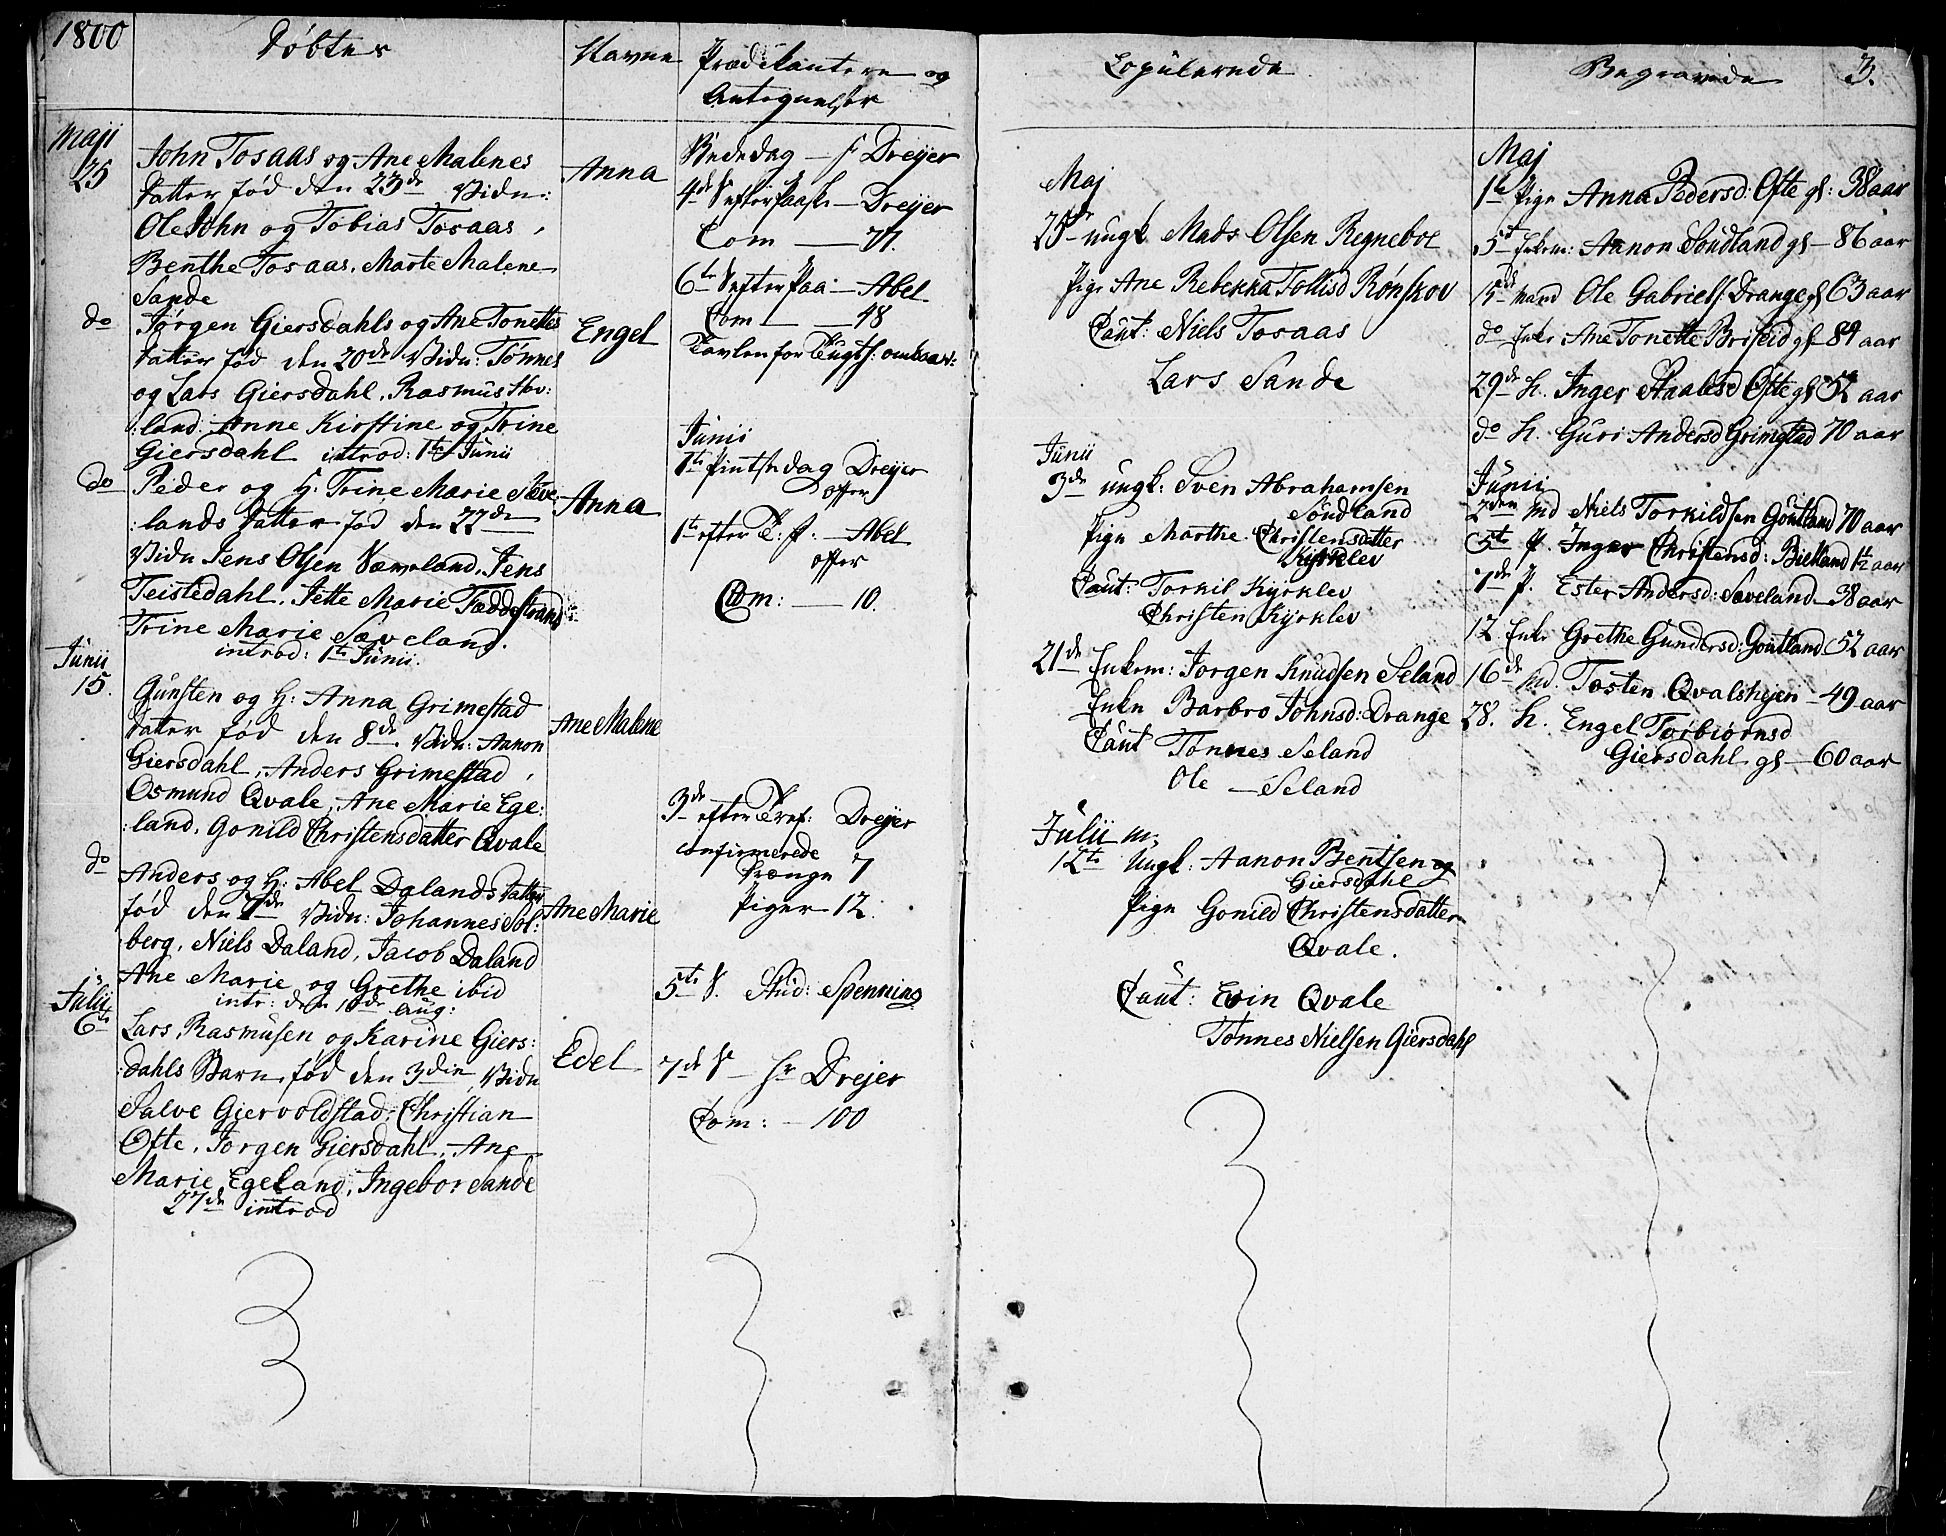 1800
Døbte
Maji
25
John Tosaas og Ane Malenes
datter fød den 23de Vidn:
Ole John og Tobias Tosaas,
Benthe Tosaas, Marte Malene
Sande
do
Jørgen Giersdahls og Ane Tonettes
datter fød den 20de Vidn: Tønnes
og Lars Giersdahl, Rasmus
:land. Anne Kirstine og Trine
Giersdahl introd: 1te Junii
do
Peder og H: Trine Marie Sæve
:lands datter fød den 22de
Vidn Jens Olsen Sæveland, Jens
Teistedahl, Jette Marie Fæddestrand
Trine Marie Sæveland.
introd: 1te Junii.
Junii
15.
Gunsten og H: Anna Grimestad
datter fød den 8de Vidn: Aanon
Giersdahl, Anders Grimestad,
Osmund Qvale, Ane Marie Ege:
:land, Gonild Christensdatter Qvale
do
Anders og H: Abel Dalands datter
fød den 7de Vidn: Johannes Sol:
berg, Niels Daland, Jacob Daland
Ane Marie og Grethe ibid
intr: den 10de Aug:
Julii
6te
Lars Rasmusen og Karine Giers:
:dahls Barn fød den 3die Vidn
Salve Giervoldstad, Christian
Ofte, Jørgen Giersdahl, Ane
Marie Egeland, Ingebor Sande
27de introd
Navne
Anna
Engel
Anna
Ane Malene
Ane Marie
Edel
Prædikantere og
Antegnelser
Bededag — Dreyer
4de S efter Paaske — Dreyer
Com — 71.
6te S efter Paa: — Abel
Com — 48
Tavlen for Tugth: ombaar:
Junii
1te Pintsedag Dreyer
offer
1te efter T: f: — Abel
offer
Com: — 10.
3de efter Tref: Dreyer
confirmerede
Drænge 7
Piger 12.
5te S. Stud: Spenning
7de S — Hr Drejer
Com: — 100
Copulerede
Maj
25de ungk. Mads Olsen Regneboe
Pige Ane Rebekka Tollisd Rønskov
Caut: Niels Tosaas
Lars Sande
Junii
3de ungk: Sven Abrahamsen
Soudland
Pige Marthe Christensdatter
Kyrklev
Caut: Torkil Kyrklev
Christen Kyrklev
21de Enkem: Jorgen Knudsen Seland
Enke Barbro Johnsd: Drange
Caut Tønnes Seland
Ole — Seland
Julii m:
12te Ungk: Aanon Bentsen og
Giersdahl
Pige Gonild Christensdatter
Qvale.
Caut: Evin Qvale
Tønnes Nielsen Giersdahl
Begravede
3.
Maj
1te Pige Anna Pedersd: Ofte gl: 38 aar
5te Enkem: Aanon Soudland gl — 86 aar
15de Mand Ole Gabriels: Drange gl 63 aar
do Enke Ane Tonette Briseid gl — 89 aar
29de H. Inger Staalesd Ofte gl 52 aar
do H. Guri Andersd Grimstad 70 aar
Junii
2den Md Niels Torkildsen Goutland 70 aar
5te P. Inger Christensd: Bielland 1½ aar
7de P. Ester Andersd: Sæveland — 38 aar
12 Enke Grethe Gundersd: Goutland 52 aar
16de Md. Tosten Qvalshejen — 49 aar
28. H. Engel Torbiørnsd
Giersdahl gl — 60 aar